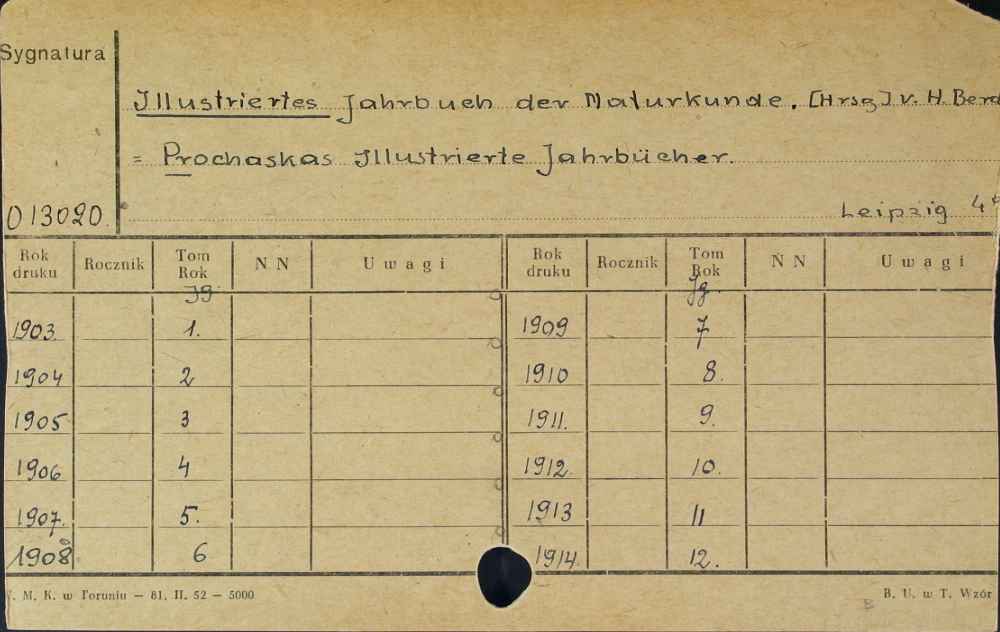 Sygnatura
Illustriertes Jahrbuch der Naturkunde. [Hrsg] v. H. Berd
= Prochaskas Illustrierte Jahrbücher.
013020. Leipzig 4°
Rok druku Rocznik Tom Rok NN Uwagi Rok druku Rocznik Tom Rok NN Uwagi
Jg. Jg.
1903. 1. 1909 7
1904 2 1910 8.
1905 3 1911. 9.
1906 4 1912 10.
1907. 5. 1913 11
1908 6 1914. 12.
M. K. w Toruniu – 81. II. 52 – 5000 B. U. w T. Wzór